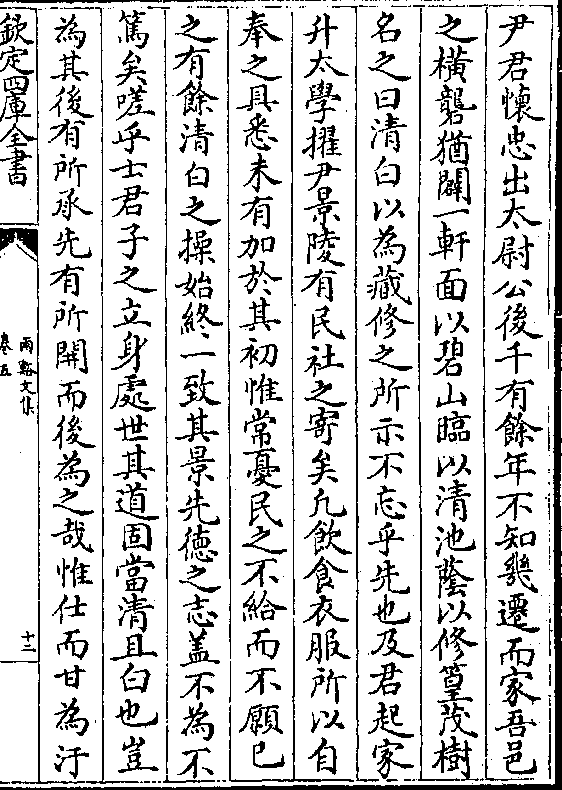 尹君懷忠出太尉公後千有餘年不知㡬遷而家吾邑
之橫礱猶闢一軒面以碧山臨以清池蔭以修篁茂樹
名之曰清白以為藏修之所示不忘乎先也及君起家
升太學擢尹景陵有民社之寄矣凡飲食衣服所以自
奉之具悉未有加於其初惟常憂民之不給而不願已
之有餘清白之操始終一致其景先徳之志盖不為不
篤矣嗟乎士君子之立身處世其道固當清且白也豈
為其後有所承先有所開而後為之哉惟仕而甘為汙
欽定四庫全書
兩谿文集
卷五
十二